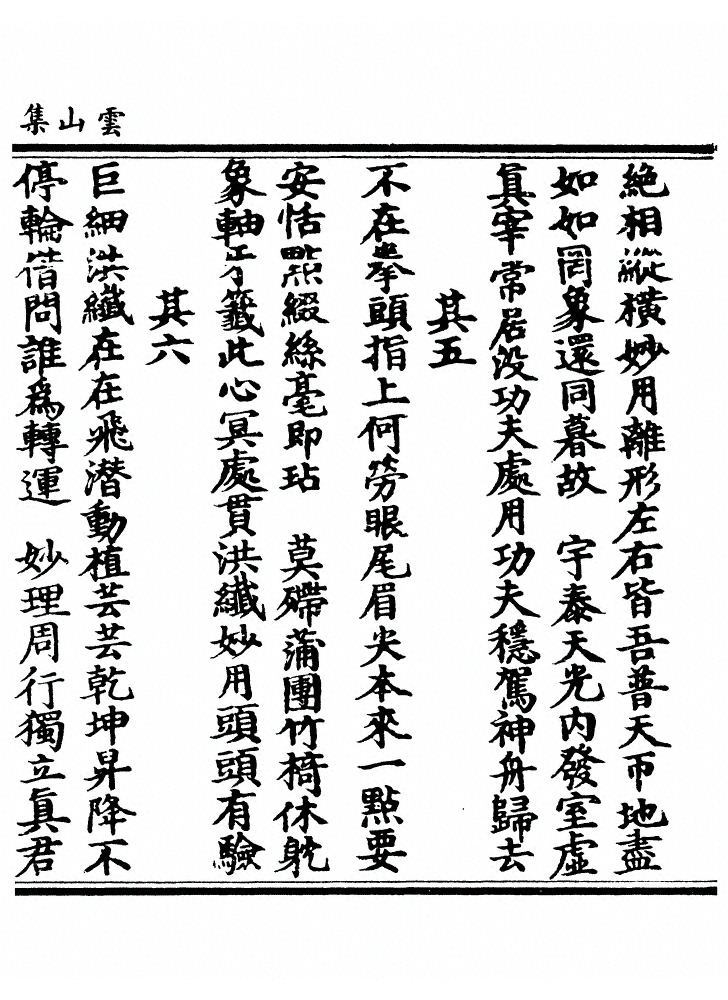 雲山集
絶相縱橫妙用離形左右皆吾普天帀地盡
如如罔象還同暮故　宇泰天光內發室虛
眞宰常居没功夫處用功夫穩駕神舟歸去
其五
不在拳頭指上何勞眼尾眉尖本來一點要
安恬㸃綴絲毫即玷　莫殢蒲團竹椅休躭
象軸牙籤此心冥處貫洪纖妙用頭頭有驗
其六
巨細洪纖在在飛潛動植芸芸乾坤昇降不
停輪借問誰爲轉運　妙理周行獨立眞君